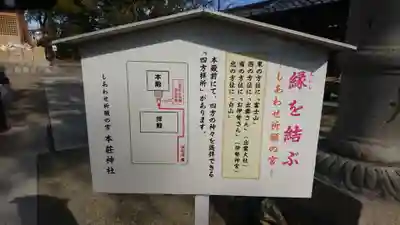 縁を結ぶ
～しあわせ祈願の宮～
東の方位に「富士山」
西の方位に「出雲さん」（出雲大社）
南の方位に「お伊勢さん」（伊勢神宮）
北の方位に「白山」
本殿前にて、四方の神々を遥拝できる
「四方拝所」があります。
本殿
拝殿
しあわせ祈願の宮 本荘神社